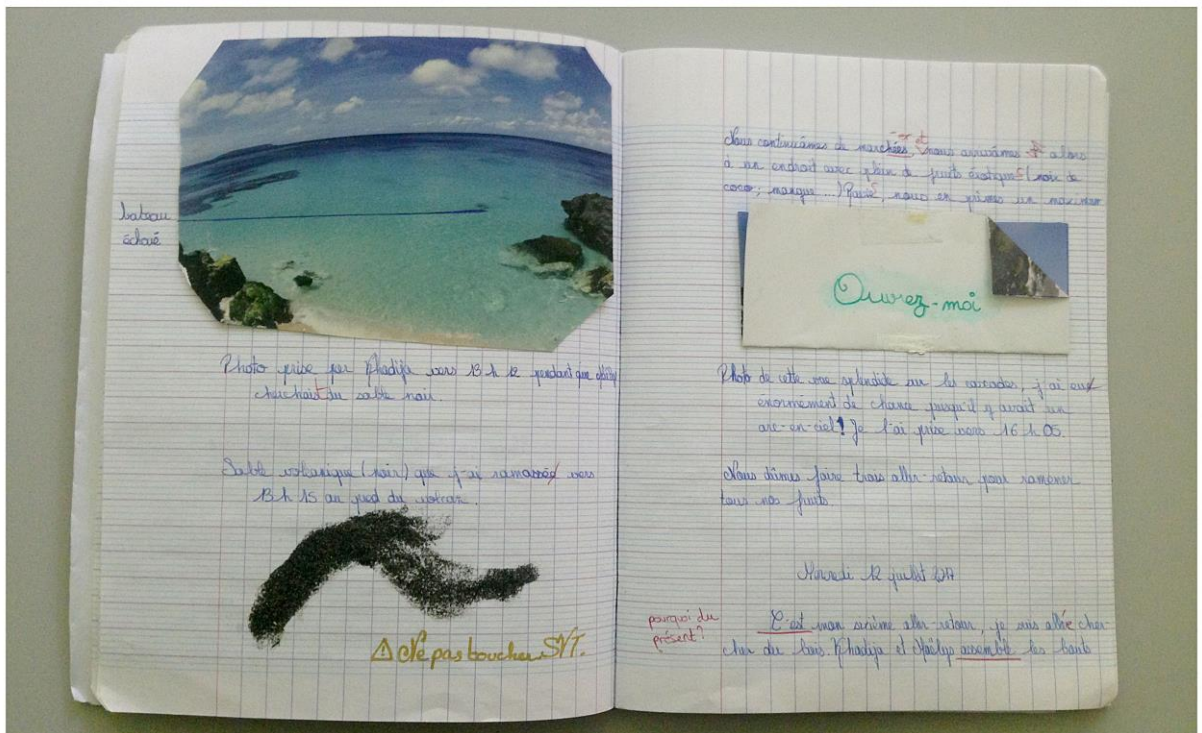 bateau
échoué
Photo prise par Khadija vers 13 h 12 pendant que Maëlys
cherchait du sable noir.
Sable volcanique (noir) que j'ai ramassée vers
13 h 15 au pied du volcan.
⚠ Ne pas toucher SVT.
Nous continuâmes de marchées, nous arrivâmes alors
à un endroit avec plein de fruits éxotiques (noix de
coco; mangue ...) Ravis, nous en prîmes un maximum
Ouvrez-moi
Photo de cette vue splendide sur les cascades, j'ai eux
énormément de chance puisqu'il y avait un
arc-en-ciel! Je l'ai prise vers 16 h 05.
Nous dûmes faire trois aller-retour pour ramener
tous nos fruits.
Mercredi 12 juillet 2017
pourquoi du
présent?
C'est mon sixième aller-retour, je suis allée cher-
cher du bois. Khadija et Maëlys assemble les bouts